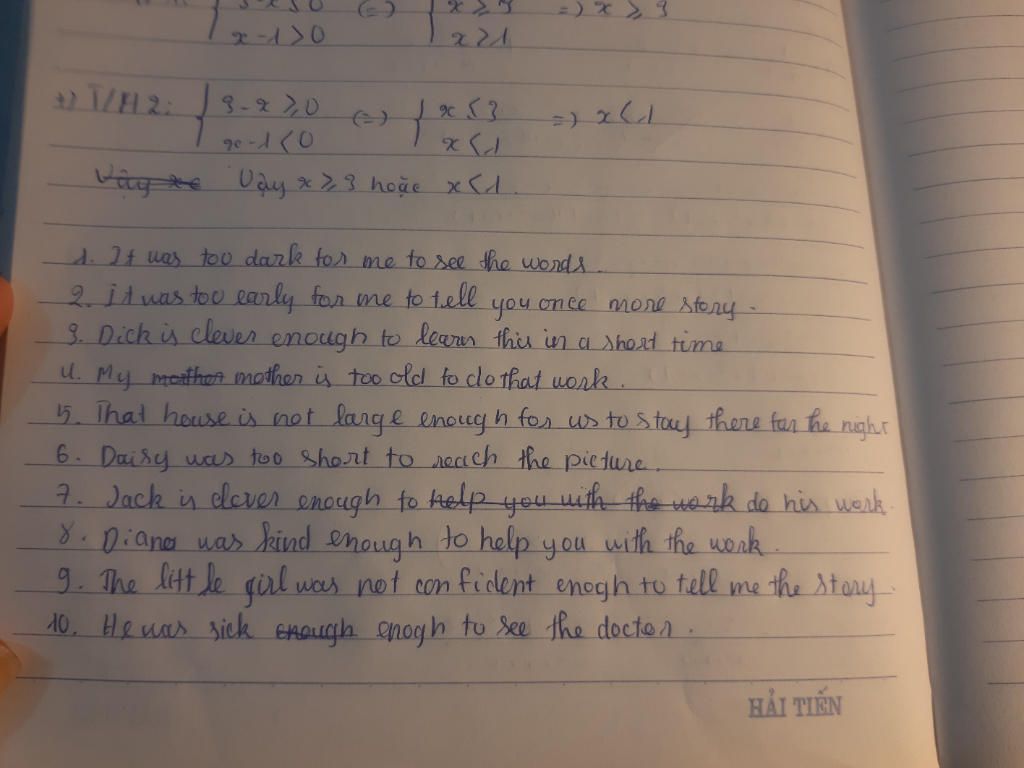 3-x≤0 (=) { x ≥ 3 =) x ≥ 3
x-1>0 x≥1
+) T/H2: { 3-x ≥ 0 (=) { x ≤ 3 =) x < 1
x-1<0 x<1
Vậy x ≥ 3 hoặc x < 1.
1. It was too dark for me to see the words.
2. it was too early for me to tell you once more story.
3. Dick is clever enough to learn this in a short time
4. My mother is too old to do that work.
5. That house is not large enough for us to stay there for the night
6. Daisy was too short to reach the picture.
7. Jack is clever enough to help you with the work do his work.
8. Diana was kind enough to help you with the work.
9. The little girl was not confident enogh to tell me the story.
10. He was sick enough enogh to see the doctor.
HẢI TIẾN